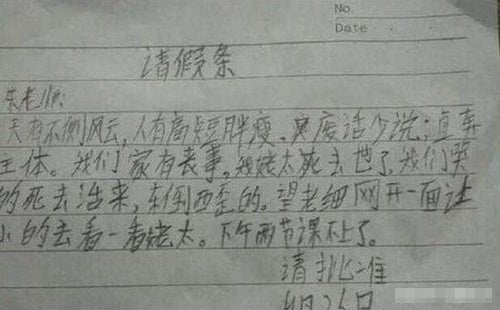 No.
Date
请假条
朱老师:
天有不侧风云,人有高短胖瘦。其废话少说;直奔
主体。我们家有丧事,我姥太死去世了,我们哭
的死去活来,东倒西歪的。望老细网开一面让
小的去看一看姥太。下午两节课不上了。
请批准
4月26日